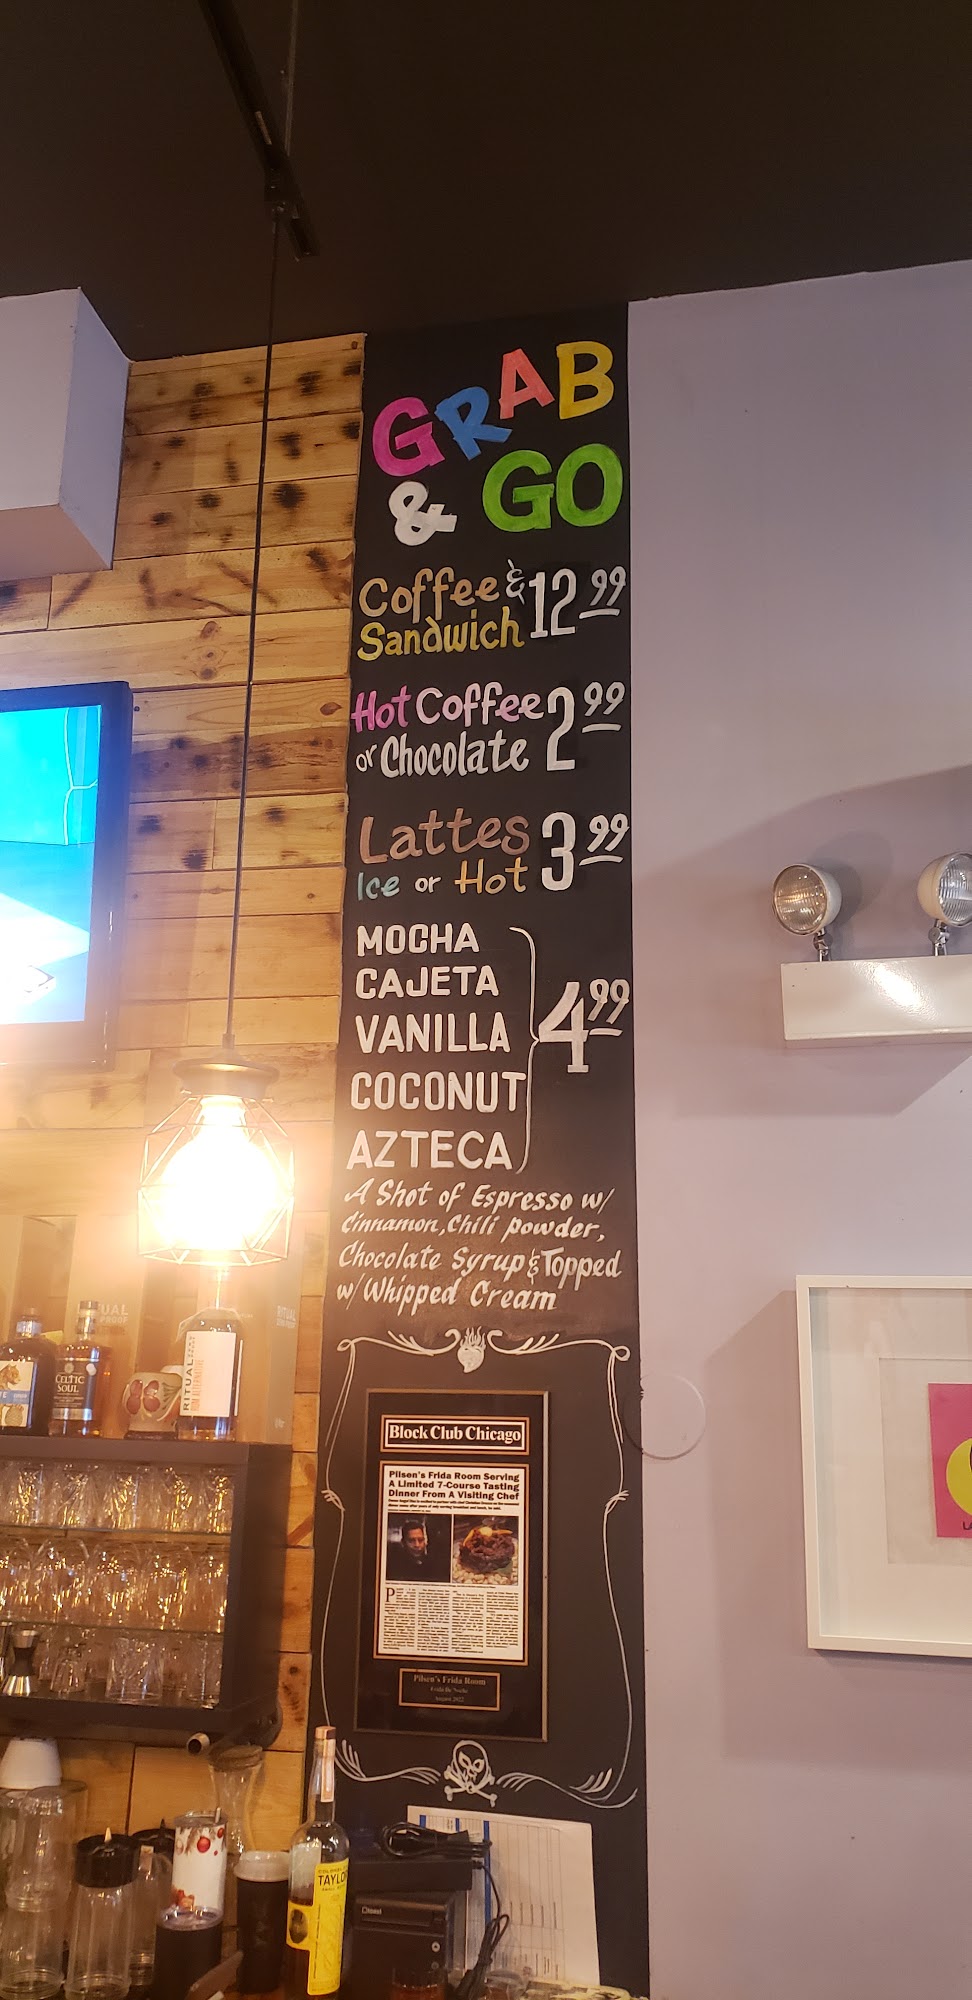 GRAB
& GO
Coffee & 12.99
Sandwich
Hot Coffee 2.99
or Chocolate
Lattes 3.99
Ice or Hot
MOCHA
CAJETA
VANILLA 4.99
COCONUT
AZTECA
A Shot of Espresso w/
Cinnamon, Chili powder,
Chocolate Syrup & Topped
w/ Whipped Cream
Block Club Chicago
Pilsen's Frida Room Serving
A Limited 7-Course Tasting
Dinner From A Visiting Chef
Pilsen's Frida Room
August 2022
CELTIC
SOUL
RITUAL
RITUAL
TAYLO